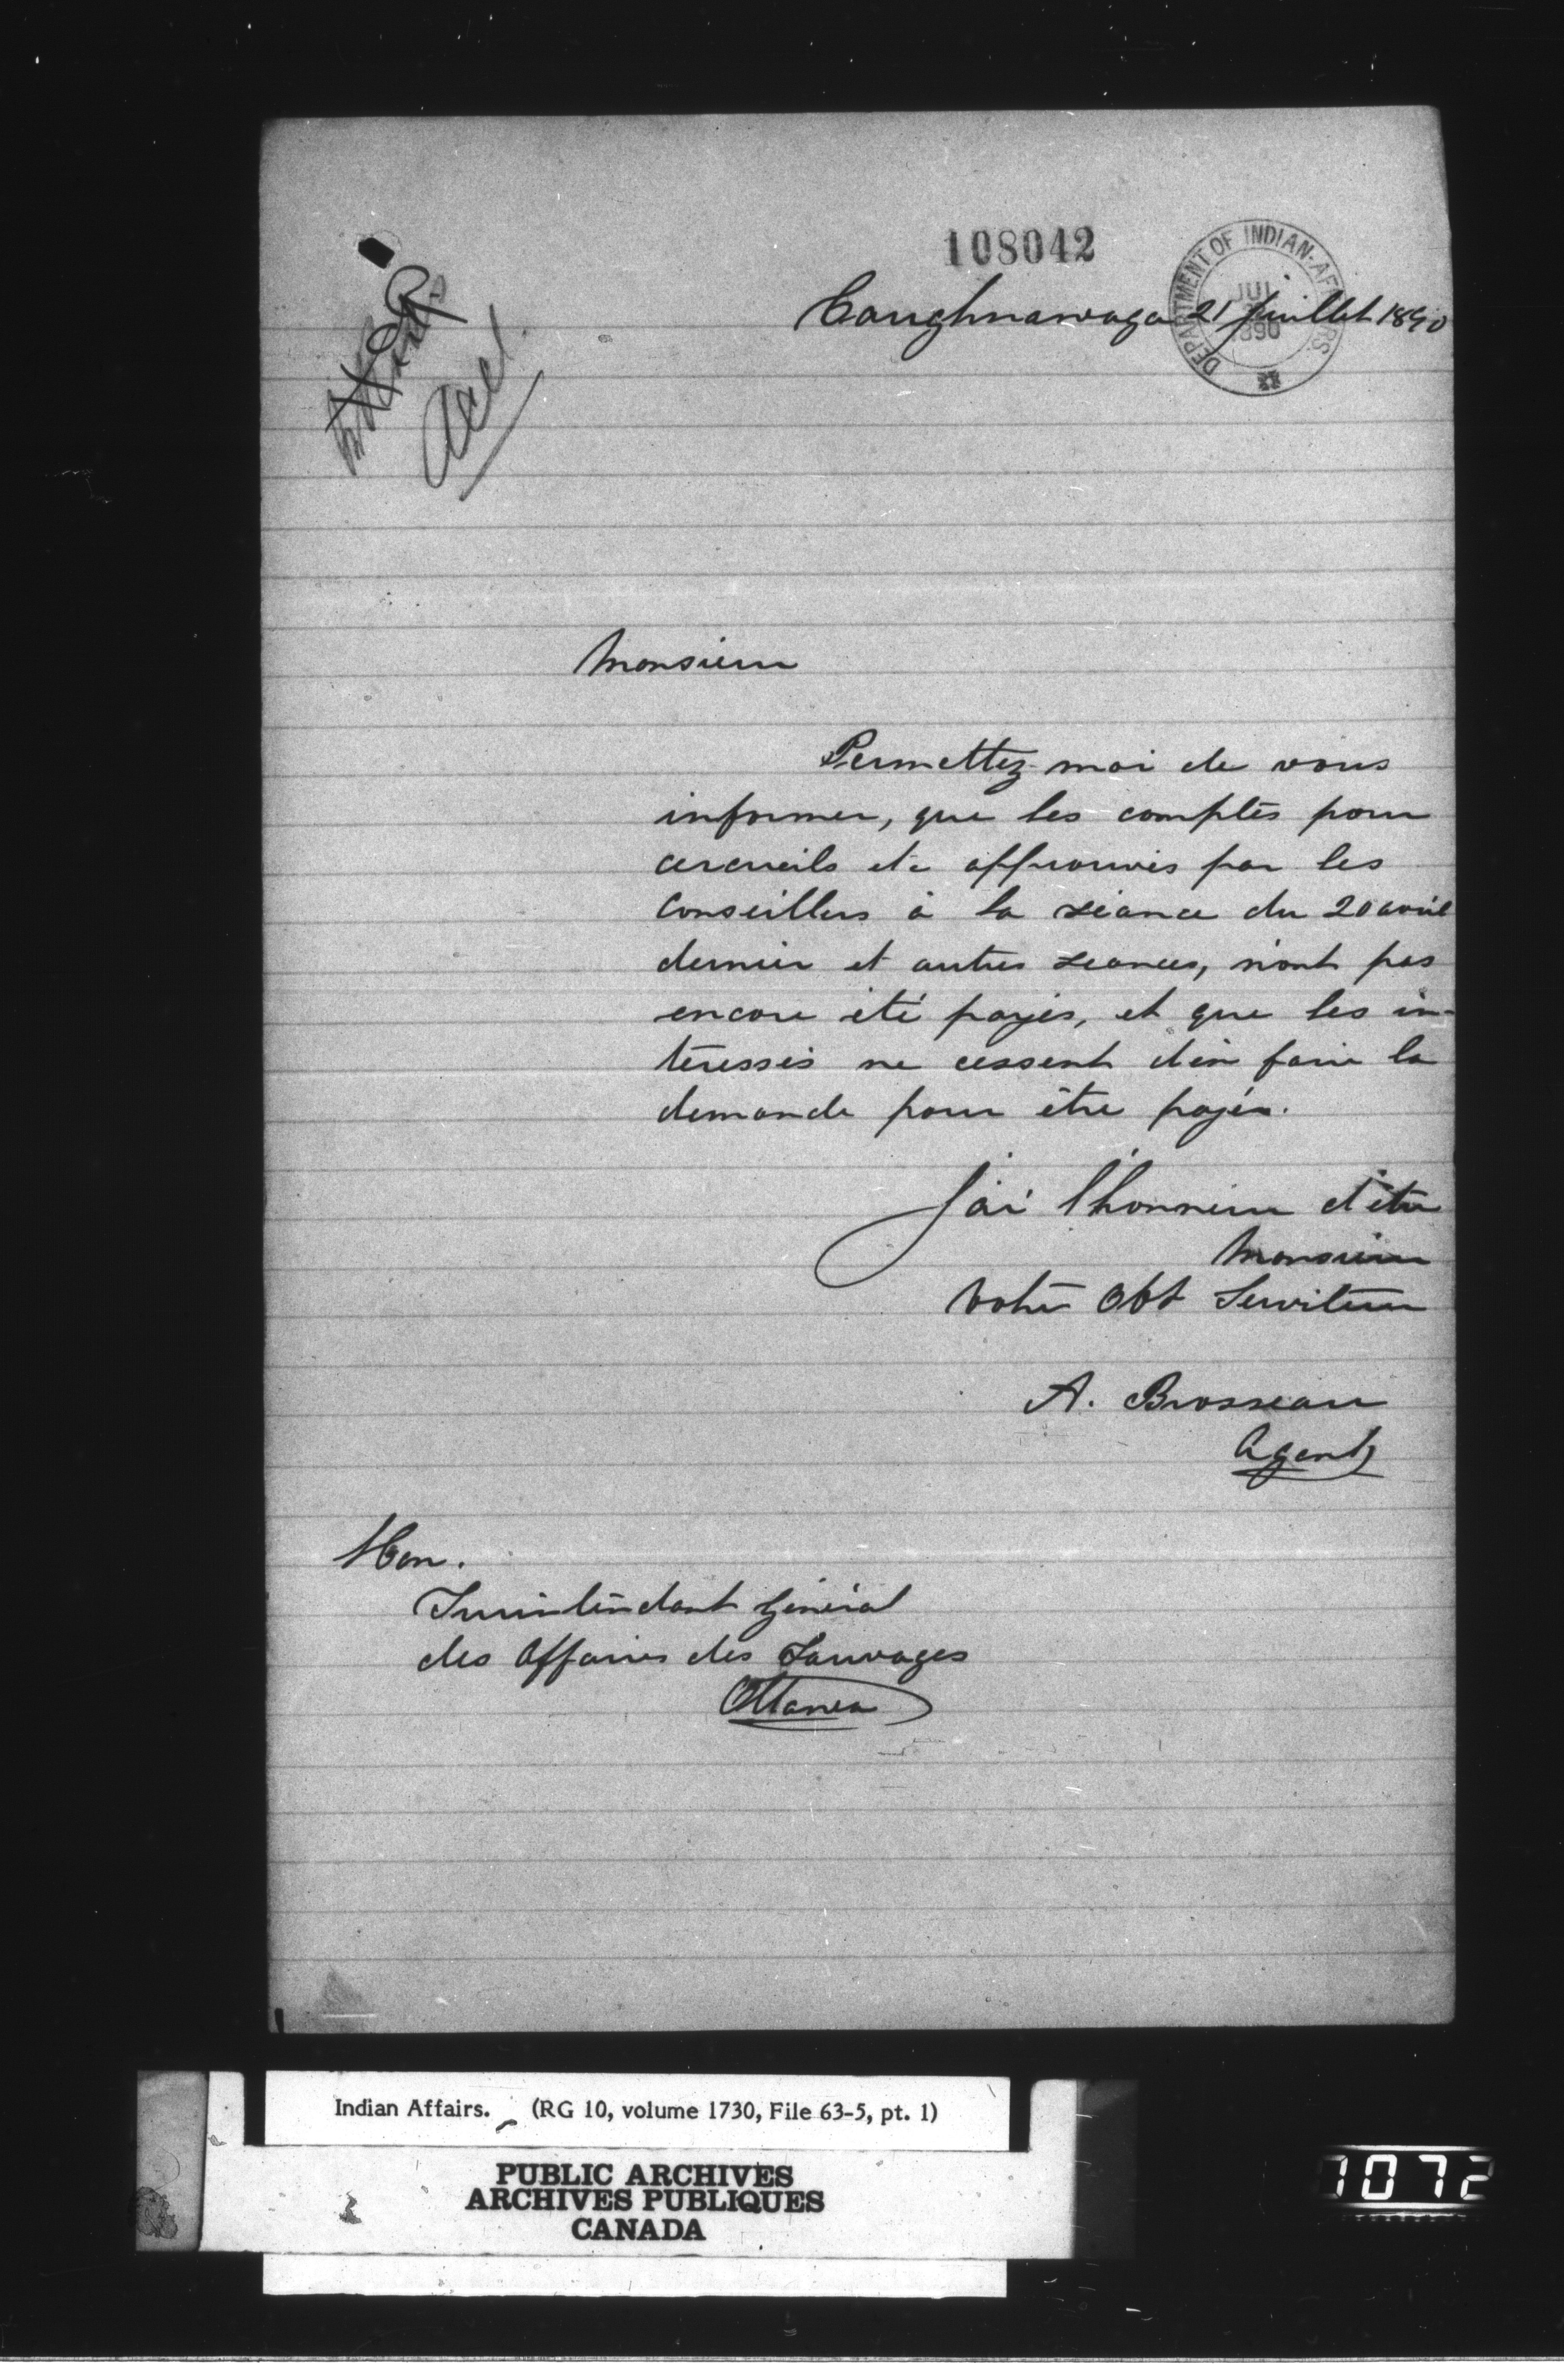 108042
DEPARTMENT OF INDIAN-AFFAIRS.
JUL
1890
Caughnawaga 21 Juillet 1890
Acct.
Monsieur
Permettez-moi de vous
informer, que les comptes pour
cercueils etc approuvés par les
Conseillers à la séance du 20 avril
dernier et autres séances, n'ont pas
encore été payés, et que les in-
téressés ne cessent d'en faire la
demande pour être payés.
J'ai l'honneur d'être
Monsieur
Votre Obt Serviteur
A. Brosseau
Agent
Hon.
Surintendant Général
des Affaires des Sauvages
Ottawa
Indian Affairs. (RG 10, volume 1730, File 63-5, pt. 1)
PUBLIC ARCHIVES
ARCHIVES PUBLIQUES
CANADA
1072